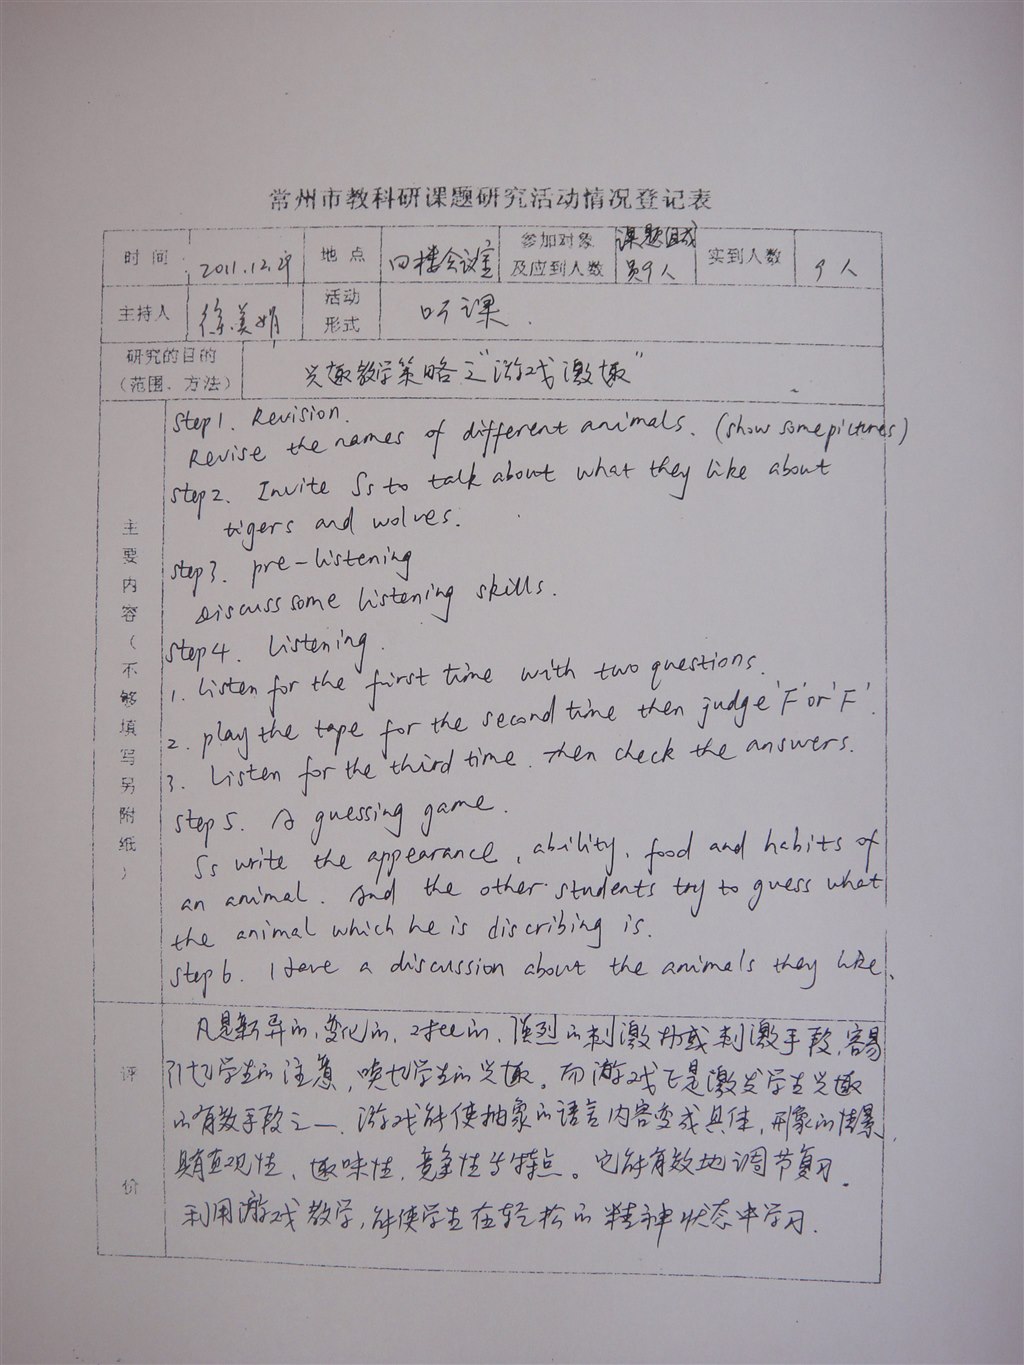 常州市教科研课题研究活动情况登记表
时间 2011.12.29 地点 四楼会议室 参加对象及应到人数 课题组成员9人 实到人数 9人
主持人 徐美娟 活动形式 听课.
研究的目的（范围、方法） 兴趣教学策略之“游戏激趣”
主要内容（不够填写另附纸）
Step1. Revision.
Revise the names of different animals. (show some pictures)
Step2. Invite Ss to talk about what they like about
tigers and wolves.
Step3. pre-listening
Discuss some listening skills.
Step4. Listening.
1. Listen for the first time with two questions.
2. play the tape for the second time then judge 'F' or 'F'.
3. Listen for the third time. Then check the answers.
Step5. A guessing game.
Ss write the appearance, ability, food and habits of
an animal. And the other students try to guess what
the animal which he is discribing is.
Step6. Have a discussion about the animals they like.
评价
凡是新异的,变化的,对比的,强烈的刺激物或刺激手段,容易
引起学生的注意,唤起学生的兴趣。而游戏正是激发学生兴趣
的有效手段之一.游戏能使抽象的语言内容变成具体,形象的情景,
具有直观性、趣味性,竞争性等特点。它能有效地调节复习.
利用游戏教学,能使学生在轻松的精神状态中学习.